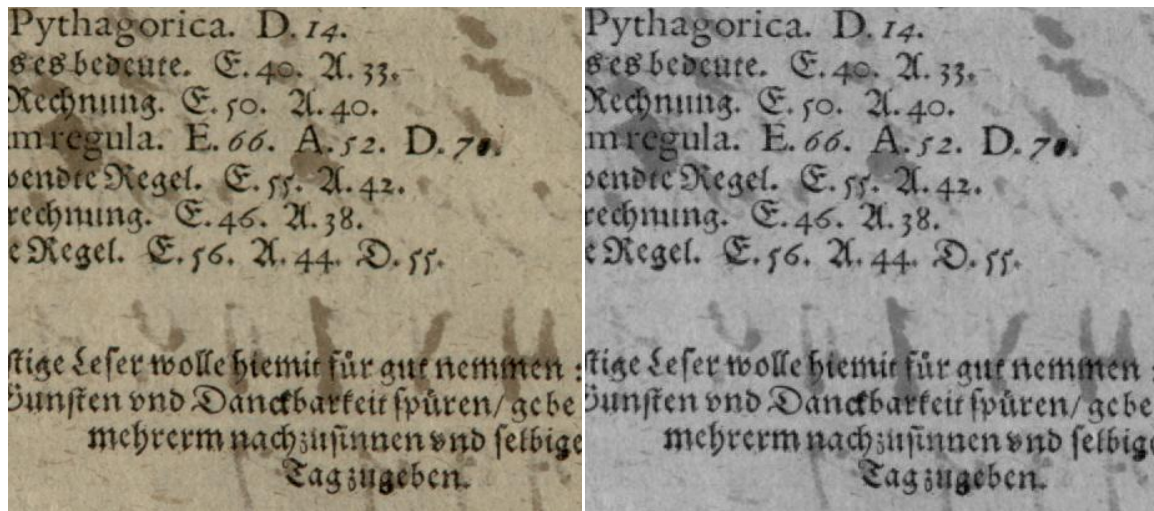 Pythagorica. D. 14.
s es bedeute. E. 40. A. 33.
Rechnung. E. 50. A. 40.
m regula. E. 66. A. 52. D. 70.
wendte Regel. E. 55. A. 42.
rechnung. E. 46. A. 38.
e Regel. E. 56. A. 44. D. 55.
stige Leser wolle hiemit für gut nemmen :
Gunsten vnd Danckbarkeit spüren/ gebe
mehrerm nachzusinnen vnd selbige
Tag zugeben.
Pythagorica. D. 14.
s es bedeute. E. 40. A. 33.
Rechnung. E. 50. A. 40.
m regula. E. 66. A. 52. D. 70.
wendte Regel. E. 55. A. 42.
rechnung. E. 46. A. 38.
e Regel. E. 56. A. 44. D. 55.
stige Leser wolle hiemit für gut nemmen :
Gunsten vnd Danckbarkeit spüren/ gebe
mehrerm nachzusinnen vnd selbige
Tag zugeben.